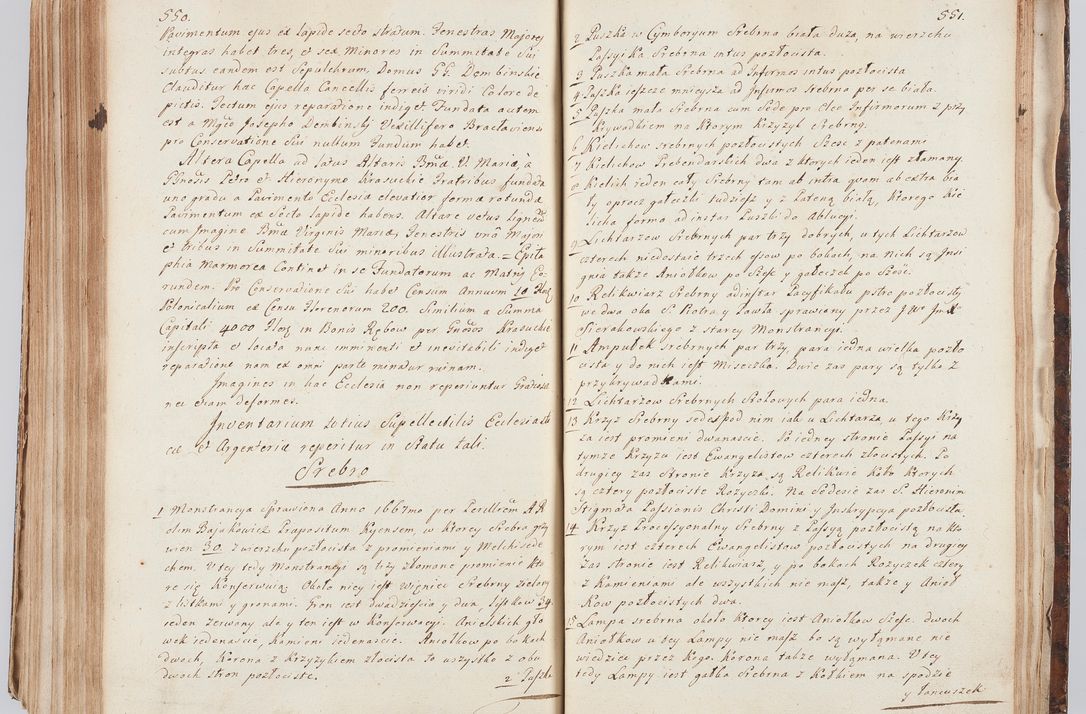 550.
Pavimentum ejus ex lapide secto stratum. Fenestras Majores
integras habet tres, et sex Minores in Summitate Sui
subtus eandem est Sepulchrum, Domus GG. Dembinskie
Clauditur hac Capella Cancellis ferreis viridi Colore de
pictis. Tectum ejus reparatione indiget Fundata autem
est a Mgco Josepho Dembinskj Vexillifero Braclaviensi
pro Conservatione Sui nullum Fundum habet.
Altera Capella ad latus Altaris Bmæ V. Mariæ à
Gnosis Petro et Hieronymo Krasuckie Fratribus fundata
uno gradu a Pavimento Ecclesia elevatior formæ rotundæ
Pavimentum ex Secto lapide habens. Altare vetus ligneum
cum Imagine Bmæ Virginis Mariæ, Fenestris una Majori
et tribus in Summitate Sui minoribus illustrata. = Epita
phia Marmorea Continet in se Fundatorum ac Matris Eo
rundem. Pro Conservatione Sui habet Censum Annuum 10 Flor
Polonicalium ex Censu Florenorum 200. Similium a Summa
Capitali 4000 Flor in Bonis Rębow per Gnosos Krasuckie
inscripta et locata nunc imminenti et inevitabili indiget
reparatione nam ex omni parte minatur ruinam.
Imagines in hac Ecclesia non reperiuntur Gratiosa
nec etiam deformes.
Inventarium totius Supellectilis Ecclesiasti
cæ et Argenteriæ reperitur in Statu tali.
Srebro
1 Monstrancya Sprawiona Anno 1667mo per Perillrem AR
olim Bajkowicz Præpositum Kyensem, w ktorey Srebra grzy
wien 30. z wierzchu pozłocista z promieniami y Melchisede
chem. U tey tedy Monstrancyi są trzy złamane promienie kto
re się Konserwuią Około niey jest wienieć Srebrny zielony
z listkami y gronami. Gron iest dwadzieścia y dwa, listkow 34.
ieden zerwany ale y ten iest w Konserwacyi. Anielskich gło
wek iedenaście, Kamieni iedenaście. Aniołkow po bokach
dwoch, Korona z Krzyżykiem złocista to wszystko z obu
dwoch Stron pozłociste.
2 Puszka
551.
2 Puszka w Cymboryum Srebrna biała duża, na wierzchu
Passyika Srebrna intus pozłocista.
3 Puszka mała Srebrna ad Infirmos intus pozłocista
4 Puszka ieszcze mnieysza ad Infirmos Srebrna per se biała.
5 Puszka mała Srebrna cum Sede pro Oleo Infirmorum z przy
krywadkiem na ktorym Krzyżyk Srebrny.
6 Kielichow srebrnych pozłocistych Szesc z patenami
7 Kielichow Prebendarskich dwa z ktorych ieden jest złamany.
8 Kielich ieden cały Srebrny tam ab intra quam ab extra bia
ły oprocz gałeczki tudziesz y z Pateną białą, ktorego Kie
licha forma ad instar Puszki do Ablucyi.
9 Lichtarzow Srebrnych par trzy dobrych, u tych Lichtarzow
czterech niedostaie trzech essow po bokach, na nich są Insi
gnia także Aniołkow po Szesc y gałeczek po Szesc.
10 Relikwiarz Srebrny adinstar Pacyfikału pstro pozłocisty
we dwa oba S. Piotra y Pawła sprawiony przez J W Jmci X
Sierakowskiego z starey Monstrancyi.
11 Ampułek srebrnych par trzy, para iedna wielka pozło
cista y do nich iest Miseczka. Dwie zas pary są tylko z
przykrywadkami.
12 Lichtarzow Srebrnych Stołowych para iedna.
13 Krzyż Srebrny sedes pod nim iak u Lichtarza, u tego Krzy
ża iest promieni dwanascie. Po iedney stronie Passyi na
tymże Krzyżu iest Ewangelistow czterech złocistych. Po
drugiey zas Stronie Krzyża są Relikwie koło ktorych
są cztery pozłociste Rożyczki. Na Sedesie zas S. Hieronim
Stigmata Passionis Christi Domini y Inskrypcya pozłocista.
14 Krzyż Processyonalny Srebrny z Passyą pozłocistą na kto
rym iest czterech Ewangelistow pozłocistych na drugiey
zas stronie iest Relikwiarz, y po bokach Rożyczek cztery
z Kamieniami ale wszystkich nie masz, także y Anioł
kow pozłocistych dwa.
15 Lampa srebrna około ktorey iest Aniołkow Szesc. dwoch
Aniołkow u tey Lampy nie masz bo są wyłamane nie
wiedziec przez kogo. Korona także wyłamana. U tey
tedy Lampy iest gałka Srebrna z kołkiem na spodzie
y łancuszek